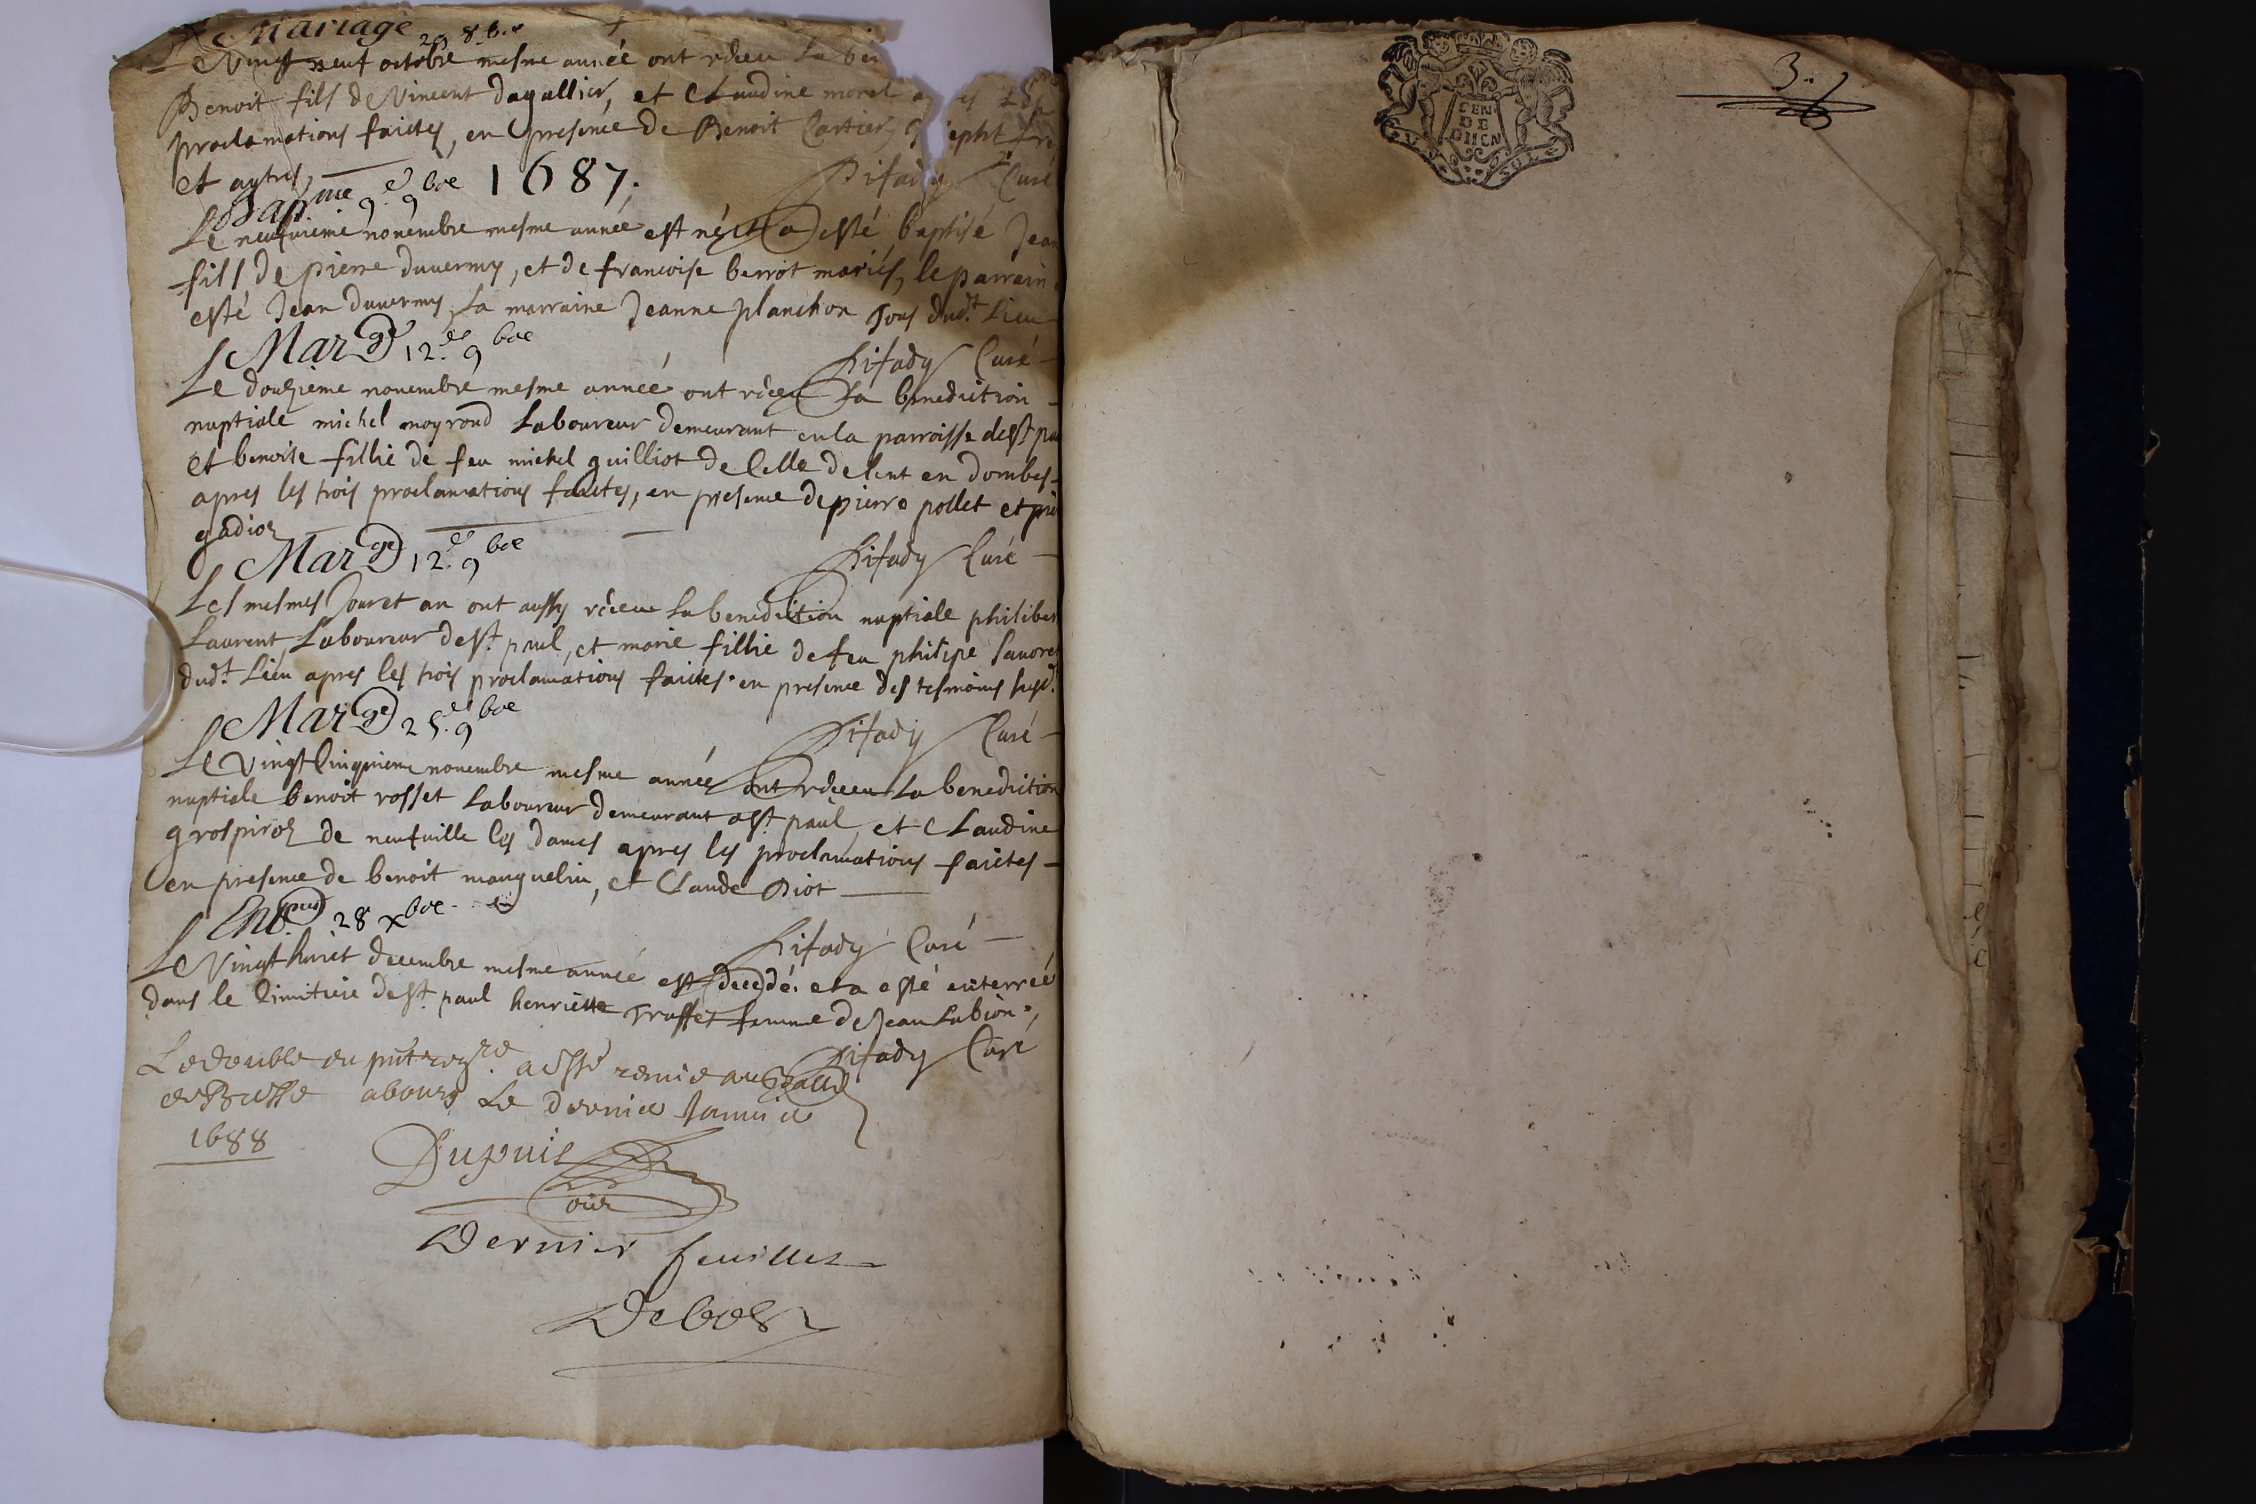 Mariage 29 8.bre
Vingt neuf octobre mesme année ont réceu la ben
Benoit fils de Vincent dagallier, et Claudine morel
proclamations faictes, en presence de Benoit Cartier,
et aytres,
Pifady Curé
Bapme 9.e 9bre 1687.
Le neufuieme nouembre mesme année est né et a esté baptisé Jean
fils de pierre duuerny, et de francoise berrot mariés, le parrain
esté Jean duuerny, la marraine Jeanne planchon tous dud.t Lieu
Pifady Curé
Marge 12.e 9bre
Le douzieme nouembre mesme année ont réceu la benediction
nuptiale michel moyrond Laboureur demeurant en la parroisse de St
et benoite fillie de feu michel guilliot de Celle de lent en dombes
apres les trois proclamations faictes, en presence de pierre pollet et
gadioz
Pifady Curé
Marge 12.e 9bre
Les mesmes Jour et an ont aussy réceu la benediction nuptiale philiber
Laurent, Laboureur de St. paul, et marie fillie de feu philipe
dud.t Lieu apres les trois proclamations faictes en presence des tesmoins susd.
Pifady Curé
Marge 25.e 9bre
Le Vingt Cinquieme nouembre mesme année ont réceu la benediction
nuptiale benoit rosset Laboureur demeurant a St. paul, et Claudine
grospiroz de neufuille les dames apres les proclamations faictes
en presence de benoit manguelin, et Claude Piot
Pifady Curé
28 xbre
Le Vingt huict decembre mesme année est decedé. et a esté enterreé
dans le Cimitiere de St. paul henriette femme de Jean Labion,
Pifady Curé
Le double du pnt regre. a esté remis au Greffe
de Bresse a bourg Le dernier Januier
1688
Dupuis
Dernier feuillet
3.
GEN
DE
DIION